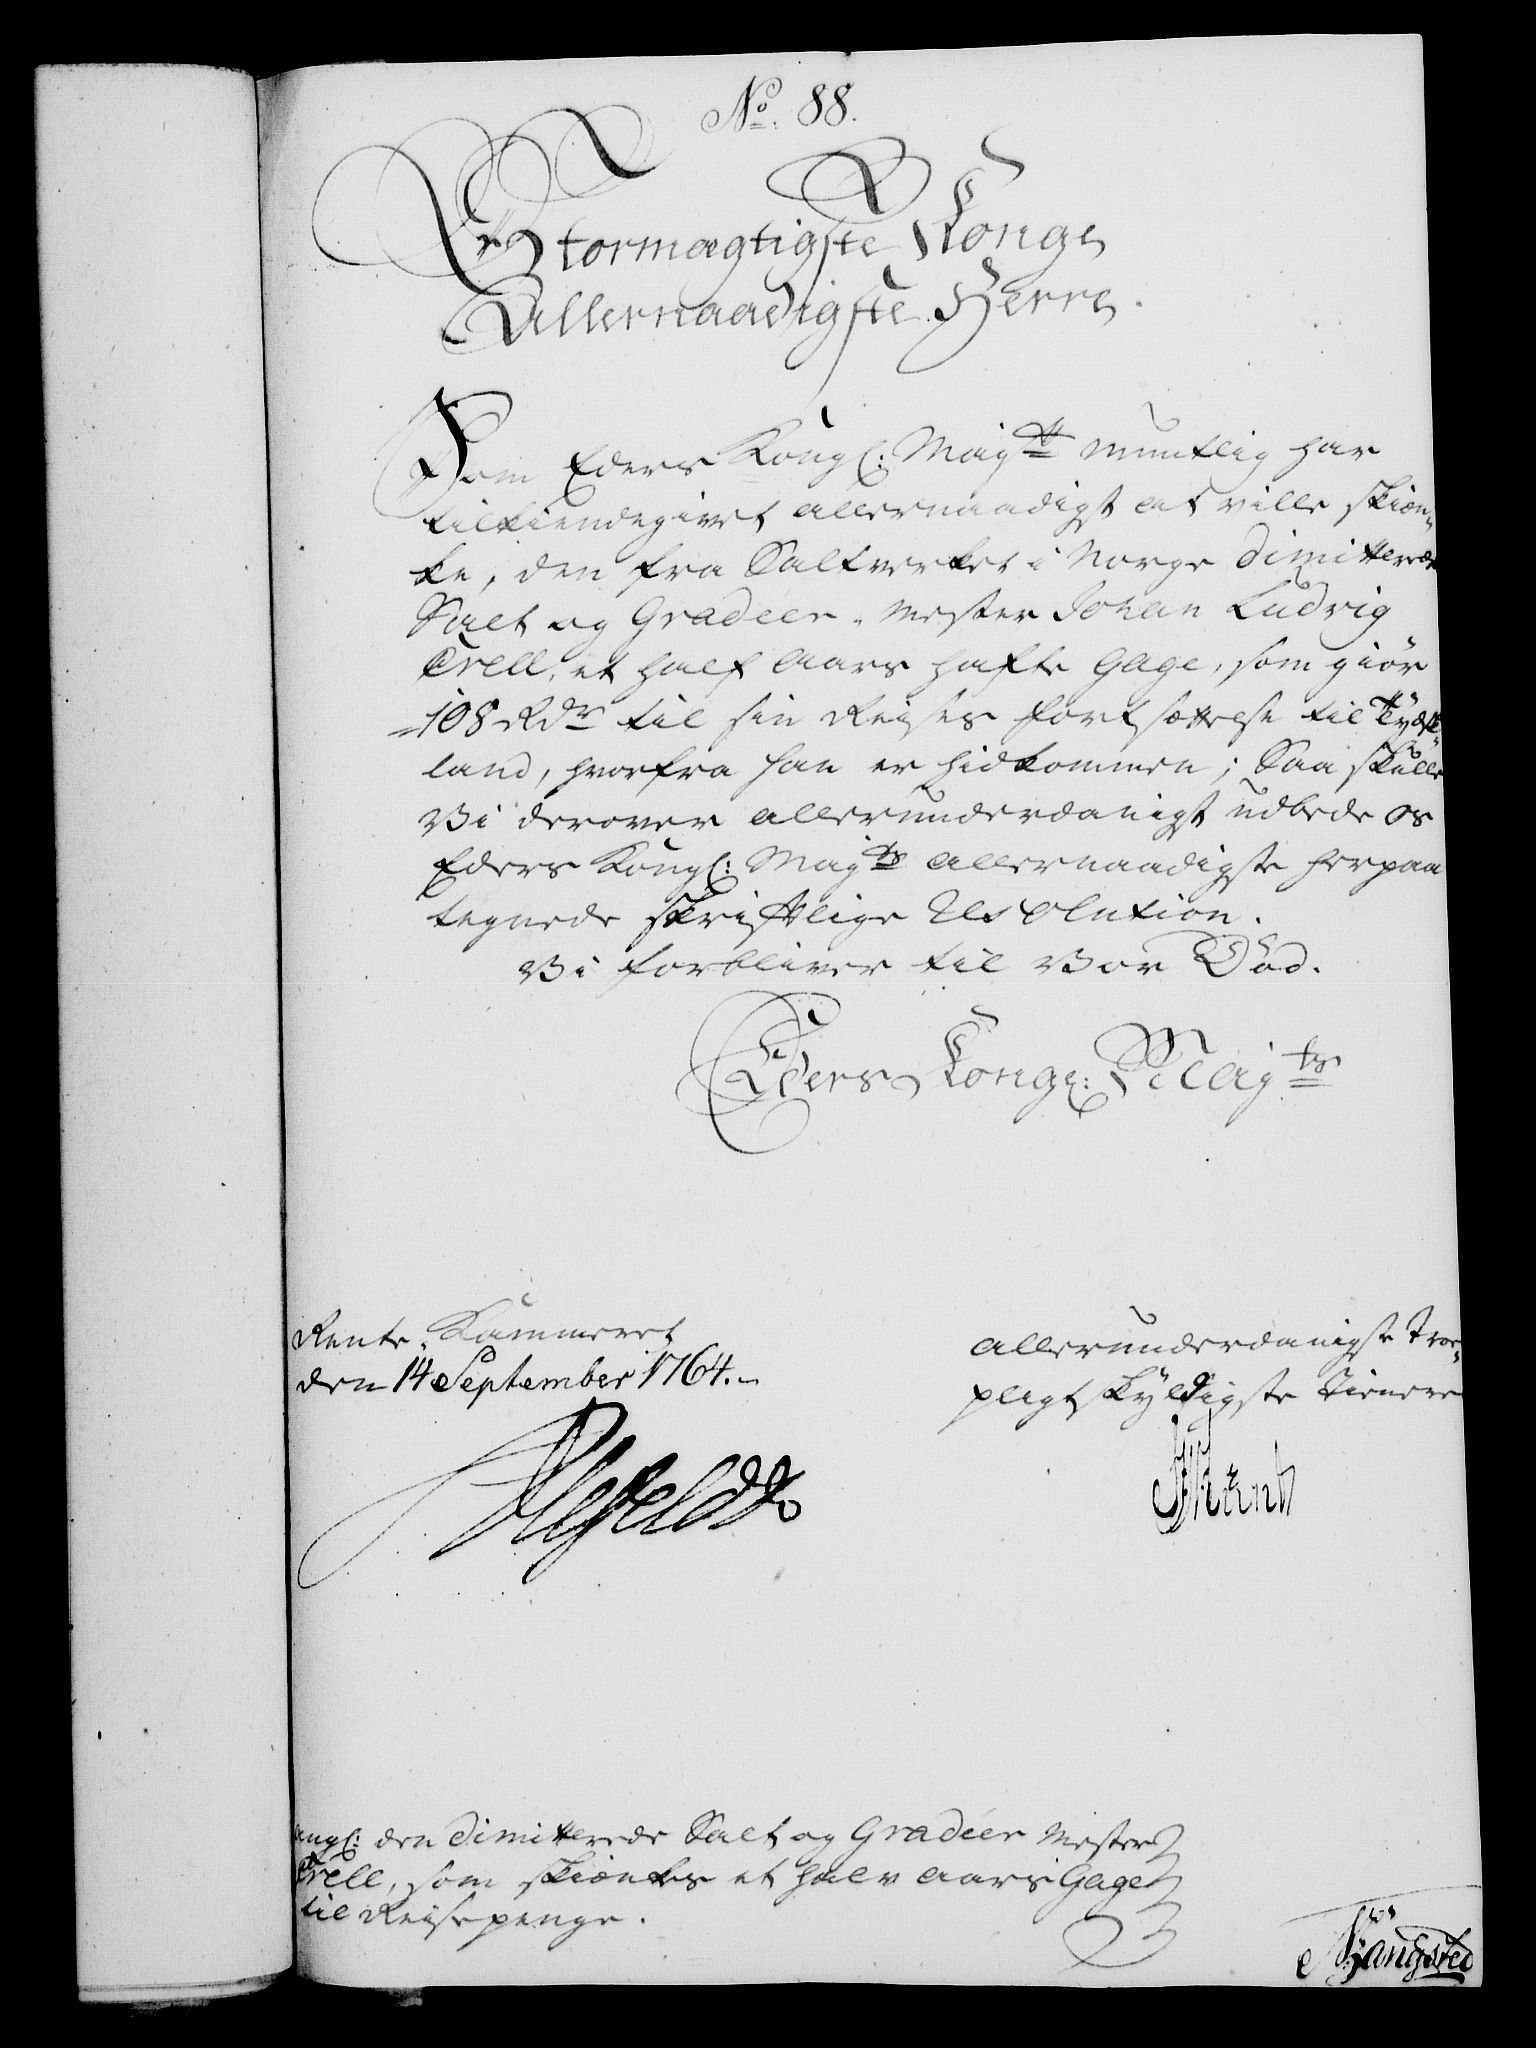 No. 88.
Stormægtigste Konge
Allernaadigste Herre.
Som Eders Kongl: Maytt mundtlig har
tilkiendegivet allernaadigst at ville skiæn-
ke, den fra Saltverket i Norge Dimitterede
Salt og Gradeer-Mester Johan Ludvig
Crell, et half Aars hafte Gage, som giör
108 Rdr til sin Reises fortsættelse til Tydsk-
land, hvorfra han er hidkommen; Saa skulle
Vi derover allerunderdanigst udbede os
Eders Kongl: Mayts allernaadigste herpaa
tegnede skriftlige Resolution.
Vi forbliver til Vor Död.
Eders Kongl: Mayts
Rente-Kammeret
den 14 September 1764.
allerunderdanigste Troe-
pligtskyldigste Tienere
Ahlefeldt
angl: den Dimitterede Salt og Gradeer Mester
Crell, som skiænkes et halv Aars Gage
til Reisepenge.